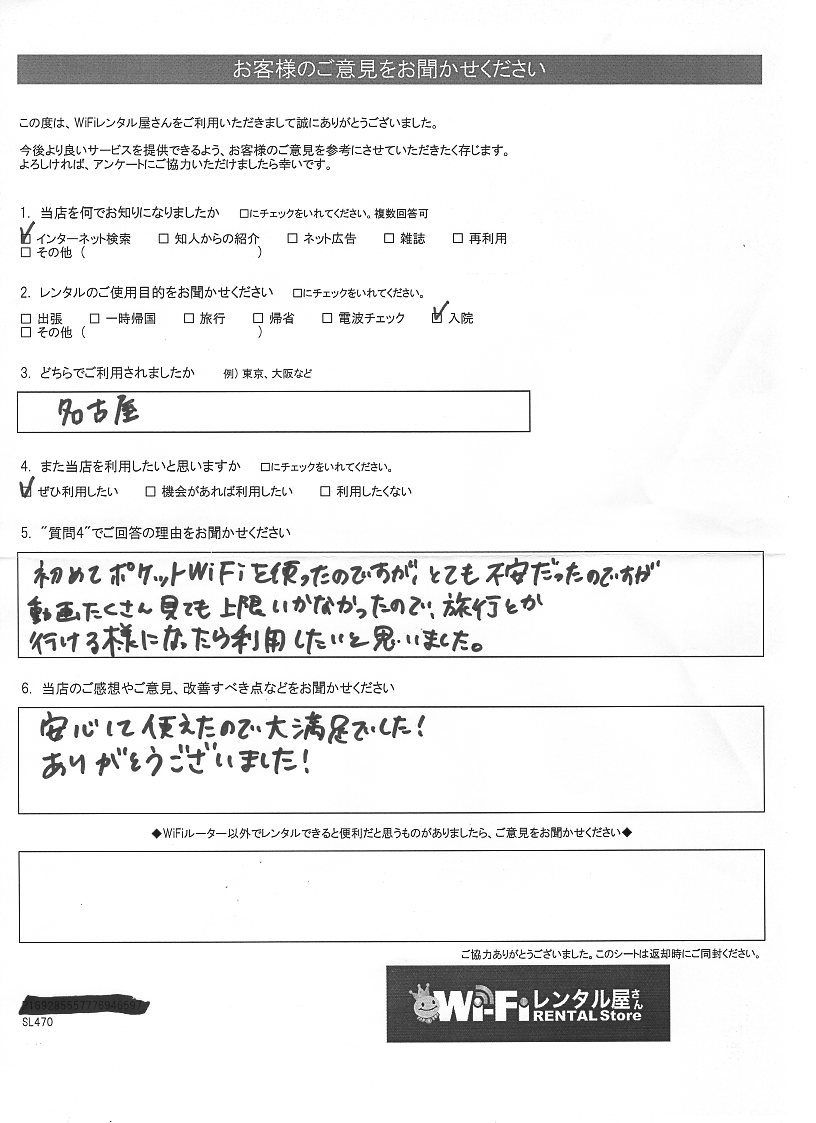 お客様のご意見をお聞かせください
この度は、WiFiレンタル屋さんをご利用いただきまして誠にありがとうございました。
今後より良いサービスを提供できるよう、お客様のご意見を参考にさせていただきたく存じます。
よろしければ、アンケートにご協力いただけましたら幸いです。
1. 当店を何でお知りになりましたか □にチェックをいれてください。複数回答可
☑ インターネット検索 □ 知人からの紹介 □ ネット広告 □ 雑誌 □ 再利用
□ その他 ( )
2. レンタルのご使用目的をお聞かせください □にチェックをいれてください。
□ 出張 □ 一時帰国 □ 旅行 □ 帰省 □ 電波チェック ☑ 入院
□ その他 ( )
3. どちらでご利用されましたか 例) 東京、大阪など
名古屋
4. また当店を利用したいと思いますか □にチェックをいれてください。
☑ ぜひ利用したい □ 機会があれば利用したい □ 利用したくない
5. "質問4"でご回答の理由をお聞かせください
初めてポケットWiFiを使ったのですが、とても不安だったのですが
動画たくさん見ても上限いかなかったので、旅行とか
行ける様になったら利用したいと思いました。
6. 当店のご感想やご意見、改善すべき点などをお聞かせください
安心して使えたので大満足でした!
ありがとうございました!
◆WiFiルーター以外でレンタルできると便利だと思うものがありましたら、ご意見をお聞かせください◆
ご協力ありがとうございました。このシートは返却時にご同封ください。
SL470
Wi-Fiレンタル屋さん
RENTAL Store